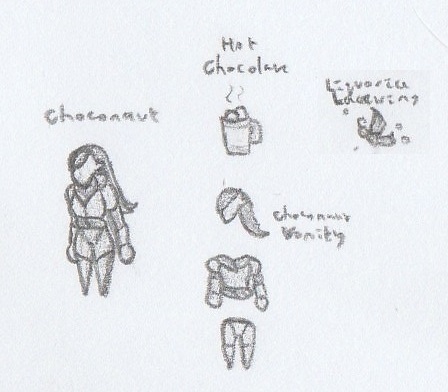 Hot
Chocolate
Liquorice
Lacewing
Choconaut
Choconaut
Vanity